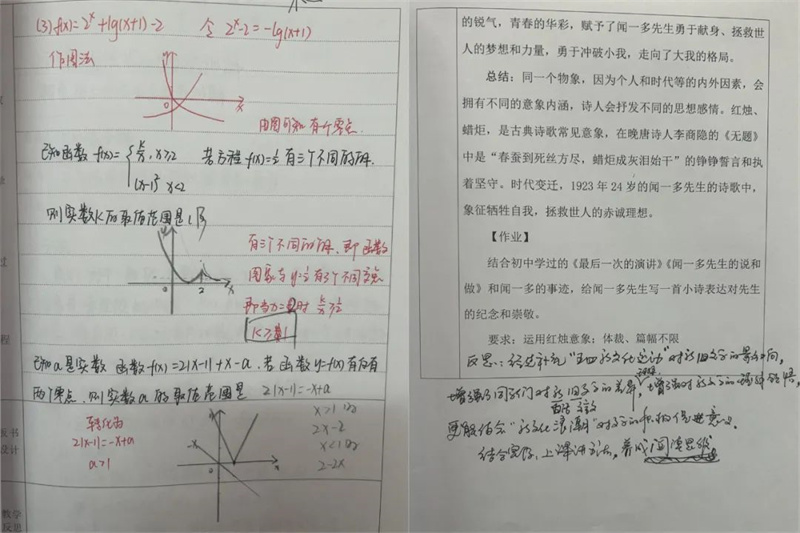 (3) f(x)=2^x+lg(x+1)-2 令 2^x-2=-lg(x+1)
作图法
0 x
由图可知有1个零点.
已知函数 f(x)={k/x, x≥2 若方程 f(x)=1/2 有三个不同的解.
(x-1)² x<2
则实数K的取值范围是
0 2 x
有三个不同的解, 即函数
图象与y=1/2有3个不同交点
即当x=2时 k/x≥1/2
K≥1
已知a是实数 函数 f(x)=2|x-1|+x-a, 若函数 y=f(x)有且有
两个零点. 则实数a的取值范围是 2|x-1|=-x+a
转化为
2|x-1|=-x+a
a>1
-x
x>1 时
2x-2
x<1 时
2-2x
过
程
板书
设计
教学
反思
的锐气，青春的华彩，赋予了闻一多先生勇于献身、拯救世
人的梦想和力量，勇于冲破小我，走向了大我的格局。
总结：同一个物象，因为个人和时代等的内外因素，会
拥有不同的意象内涵，诗人会抒发不同的思想感情。红烛、
蜡炬，是古典诗歌常见意象，在晚唐诗人李商隐的《无题》
中是“春蚕到死丝方尽，蜡炬成灰泪始干”的铮铮誓言和执
着坚守。时代变迁，1923 年 24 岁的闻一多先生的诗歌中，
象征牺牲自我，拯救世人的赤诚理想。
【作业】
结合初中学过的《最后一次的演讲》《闻一多先生的说和
做》和闻一多的事迹，给闻一多先生写一首小诗表达对先生
的纪念和崇敬。
要求：运用红烛意象；体裁、篇幅不限
反思: 经过补充“五四新文化运动”对新旧文学的影响,
增强了同学们对新旧文学的差异, 增强对新文学的
白话 文言
“新文化浪潮”对文学的积极促进意义.
结合实际, 上课讲方法, 养成阅读思维